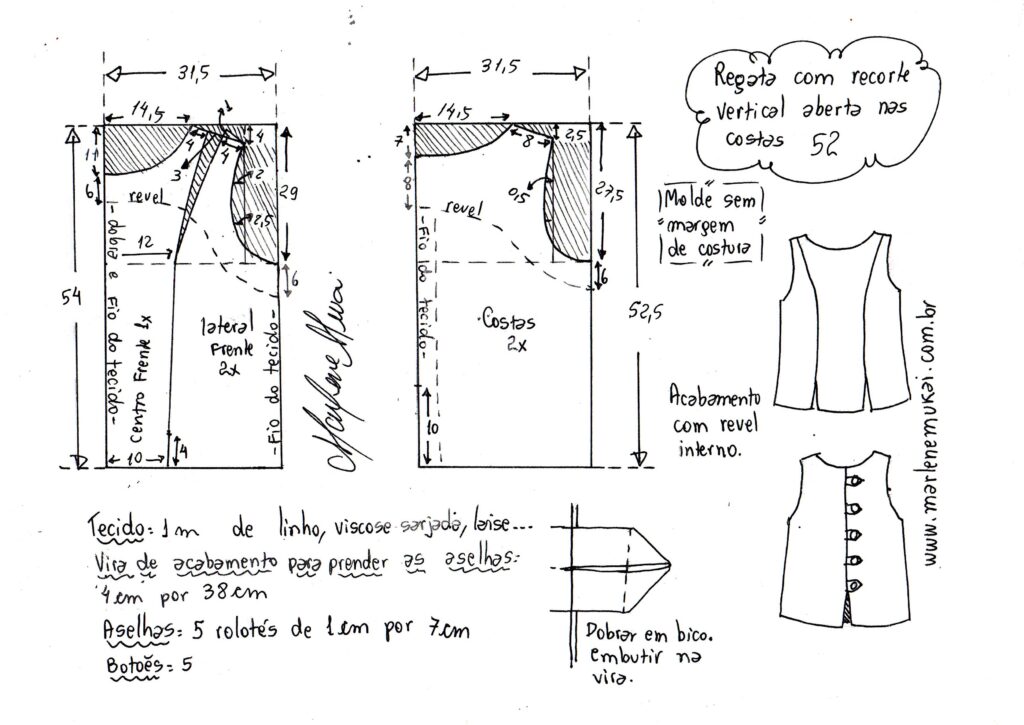 31,5
14,5
1
11
6
4
4
4
3
2
2,5
29
6
revel
12
54
-dobra e Fio do tecido-
Centro Frente 1x
lateral
Frente
2x
-Fio do tecido-
10
4
31,5
14,5
7
8
8
2,5
0,5
27,5
6
revel
-Fio do tecido-
Costas
2x
10
52,5
Regata com recorte
vertical aberta nas
costas 52
Molde sem
margem
de costura
Acabamento
com revel
interno.
www.marlenemukai.com.br
Tecido: 1m de linho, viscose sarjada, laise...
Vira de acabamento para prender as aselhas:
4cm por 38cm
Aselhas: 5 rolotés de 1cm por 7cm
Botões: 5
Dobrar em bico.
embutir na
vira.